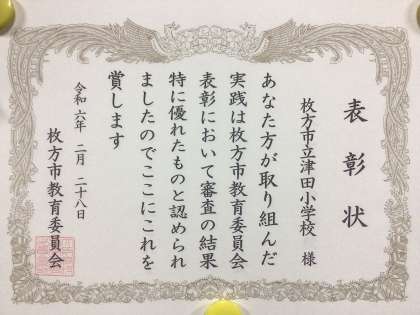 表彰状
枚方市立津田小学校 様
あなた方が取り組んだ
実践は枚方市教育委員会
表彰において審査の結果
特に優れたものと認められ
ましたのでここにこれを
賞します
令和六年 二月 二十八日
枚方市教育委員会